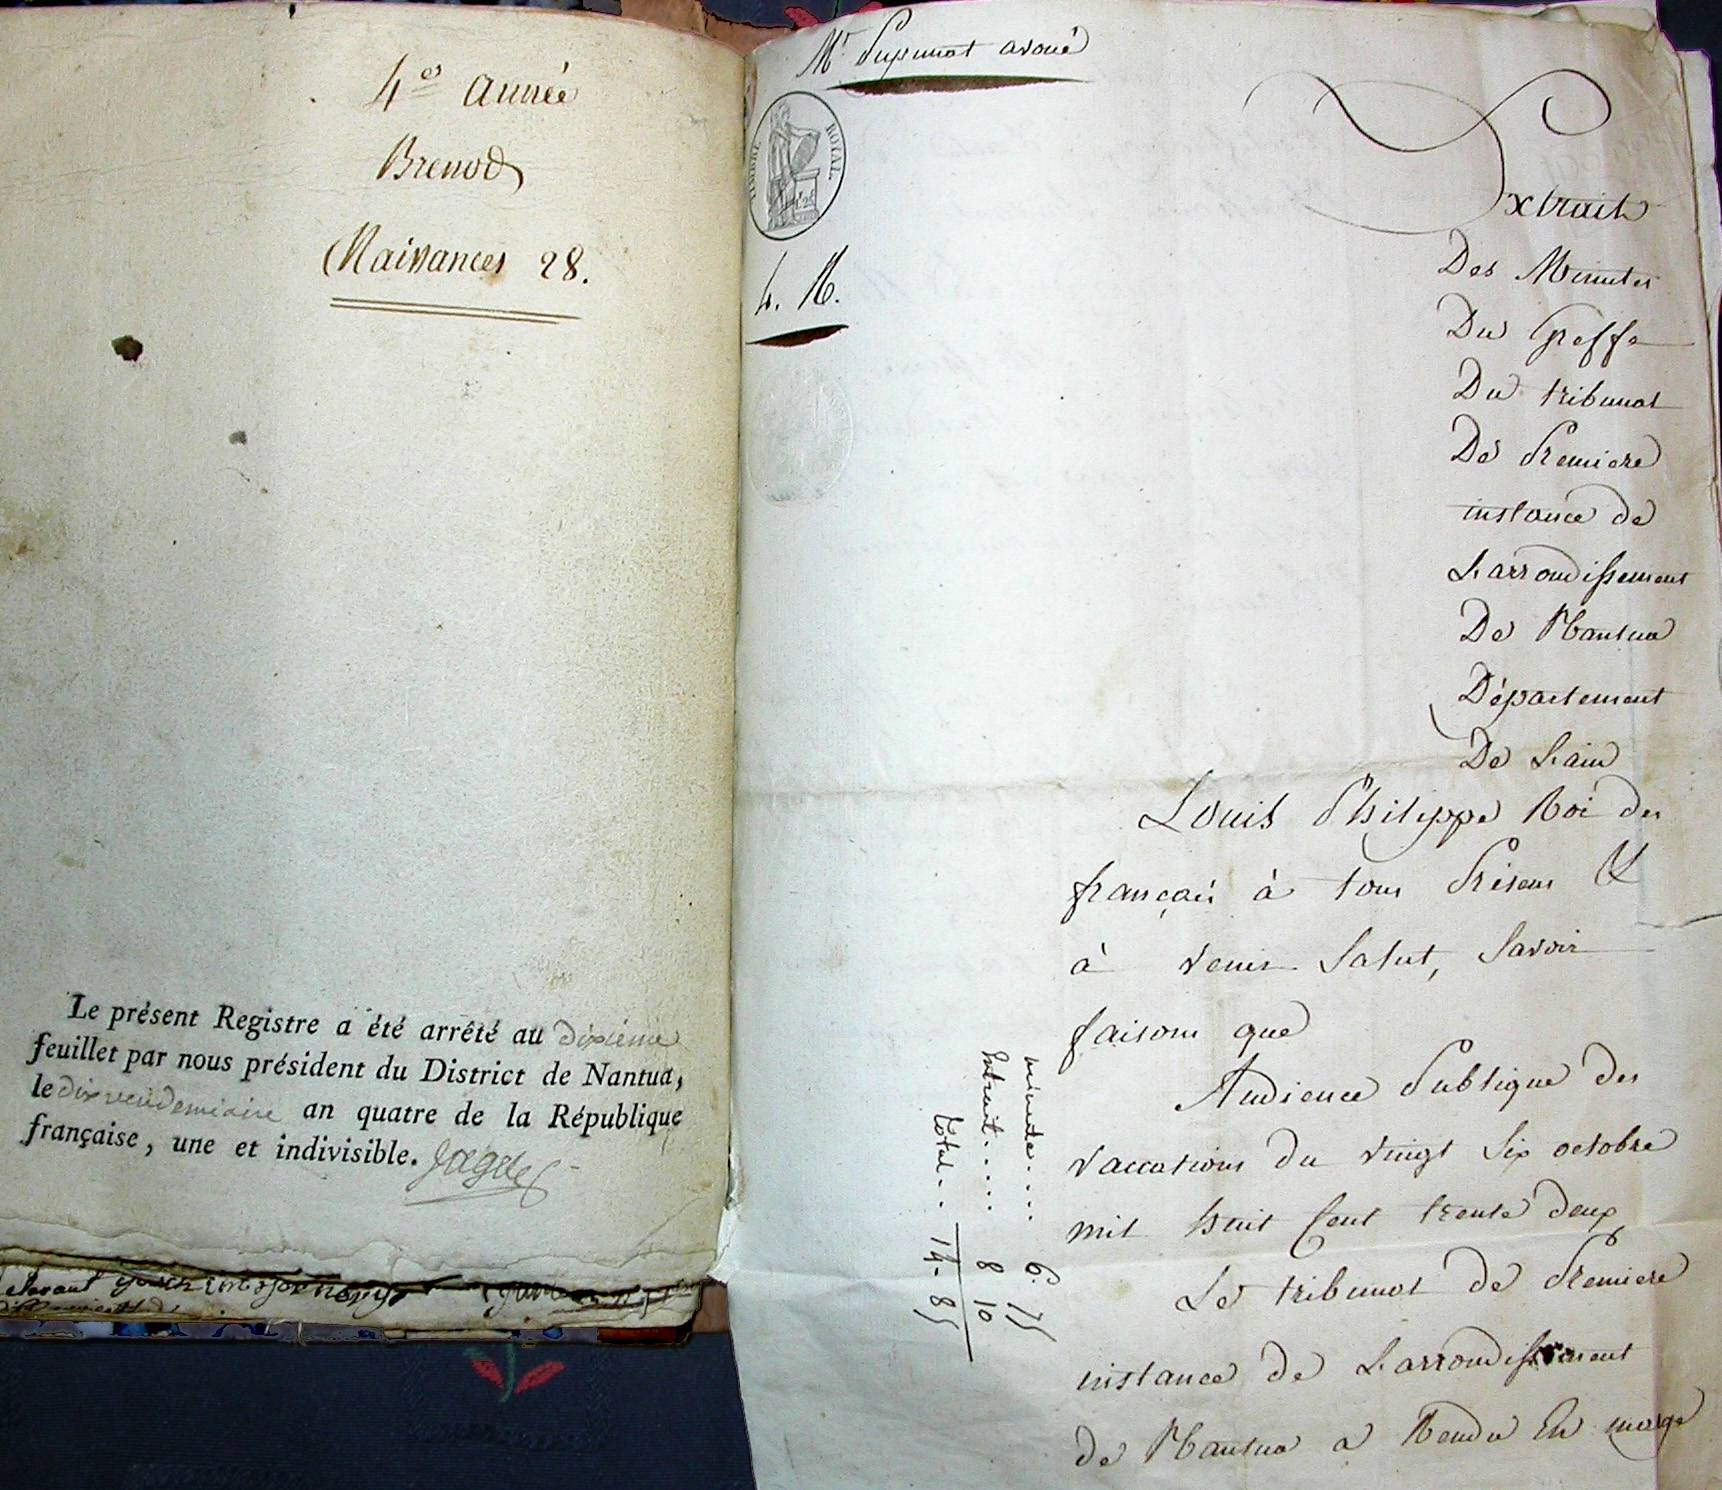 4e année
Brenod
Naissances 28.
Le présent Registre a été arrêté au dixième
feuillet par nous président du District de Nantua,
le dix vendemiaire an quatre de la République
française, une et indivisible.
Mr avoué
TIMBRE ROYAL
Extrait
Des Minutes
Du Greffe
Du tribunal
De Premiere
instance de
Larrondissement
De Nantua
Département
De Lain
Louis Philippe Roi des
français à tous Présens &
à venir Salut, Savoir
faisons que
Audience Publique des
vaccations du vingt Six octobre
mil huit Cent trente deux
Le tribunal de Premiere
instance de Larrondissement
de Nantua a Rendu En marge
minute.... 6. 75
Extrait..... 8 10
total.. 14. 85